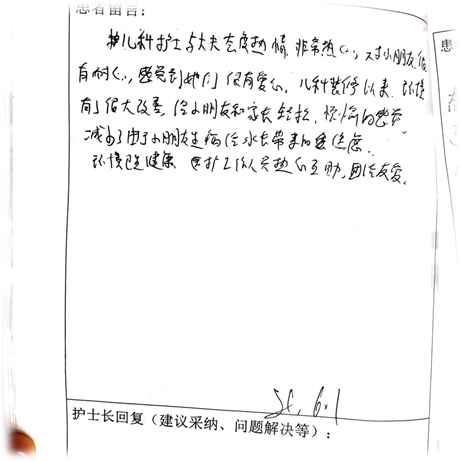 患者留言：
患
儿科护士与大夫态度热情，非常热心，对小朋友很
有耐心，感受到她们很有爱心。儿科装修以来，环境
有了很大改善，给小朋友和家长轻松，愉悦的感觉
减少了由于小朋友生病给家长带来的焦虑感。
环境健康 医护工作人员热心互助，团结友爱。
护士长回复（建议采纳、问题解决等）：